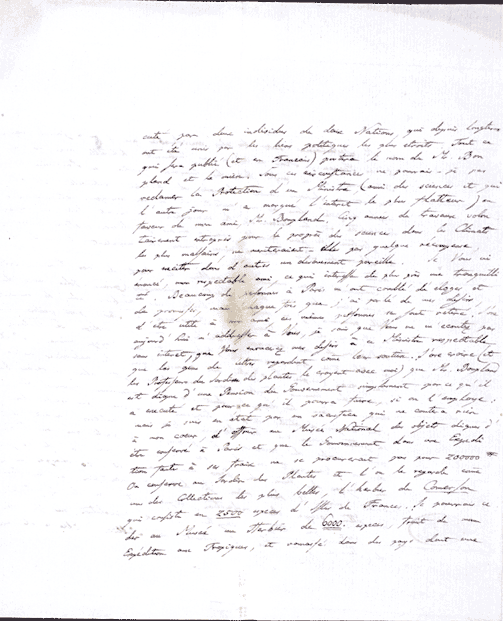 cuté par deux individus de deux Nations, qui depuis longtems
ont été unis par les liens politiques les plus étroits. Tout ce
qui sera publié (et en Francais) portera le nom de M. Bon
pland et le mien. Dans ces circonstances ne pouvais-je pas
reclamer la Protection d'un Ministre (ami des sciences et qui
l'autre jour m'a marqué l'interet le plus flatteur) en
faveur de mon ami M. Bonpland. Cinq années de travaux volon
tairement pour le progrès des sciences dans les Climats
les plus malsains, ne meriteraient-elles pas quelque recompense
pour exciter dans d'autres un devouement pareille. Je Vous ai
mon respectable ami, ce qui interesse de plus près ma tranquillité
Beaucoup de personnes à Paris m'ont comblé d'eloges et
de promesses, mais chaque fois que j'ai parlé de mes desirs
d'etre utile à mon ami ces mêmes personnes se sont Je
aujourd'hui m'addresse à Vous, je sais que l'on ne m'écoute pas
sans interet, que Vous mes desirs à ce Ministre respectable
que les gens de lettres regardent come leur soutien. J'ose croire (et
les Professeurs du Jardin des plantes le croyent avec moi) que M. Bonpland
est digne d'une Pension du Gouvernement simplement par ce qu'il
a executé et pour ce qu'il pourra faire, si on l'employe:
mais je suis en etat par un sacrifice qui ne coute rien
à mon coeur, d'offrir au Musée National un objet digne d'
être conservé à Paris et que le Gouvernement dans une Expedi
tion faite à ses fraix ne se procurerait pas pour 200000
On conserve au Jardin des Plantes et l'on le regarde come
une des Collections les plus belles l'herbier de Comerson
qui consiste en 2500 especes d'Isles de France. Je pourrais ce
der au Musée un Herbier de 6000 especes, fruit de mon
Expédition aux Tropiques, et ramassé dans des pays dont une